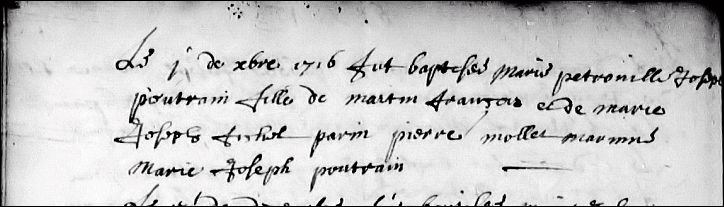 Le j de xbre 1716 fut baptesée Marie petronille Joseph
poutrain fille de martin françois et de marie
Joseph fichel parin pierre mollet marinne
Marie Joseph poutrain